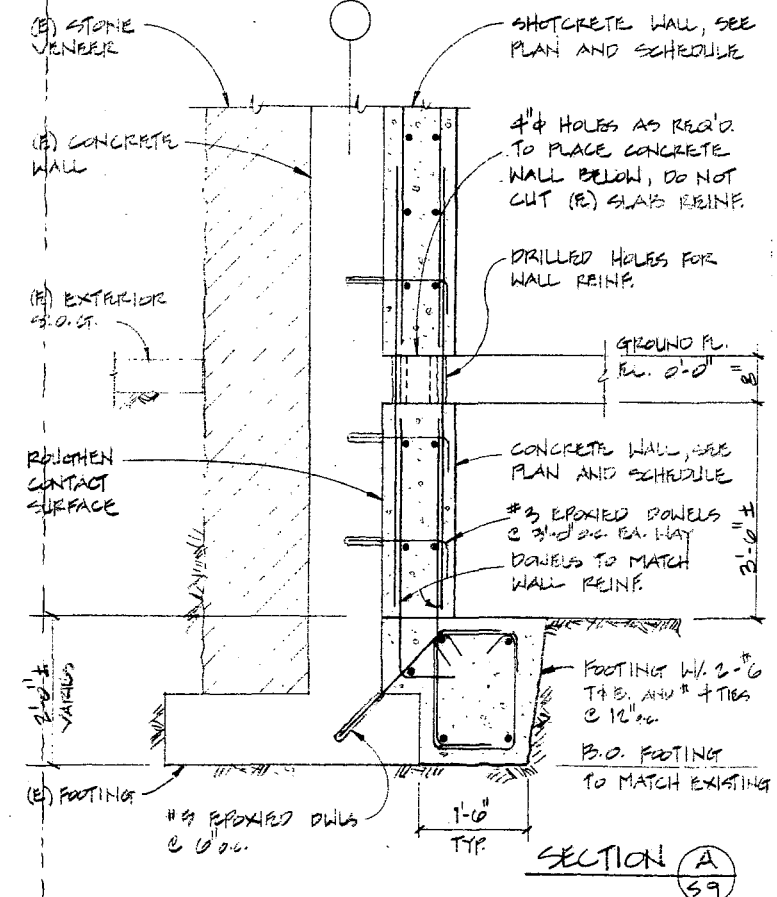 (E) STONE
VENEER
SHOTCRETE WALL, SEE
PLAN AND SCHEDULE
(E) CONCRETE
WALL
4"ϕ HOLES AS REQ'D.
TO PLACE CONCRETE
WALL BELOW, DO NOT
CUT (E) SLAB REINF.
DRILLED HOLES FOR
WALL REINF.
(E) EXTERIOR
S.O.G.
GROUND FL.
EL. 0'-0"
8"
ROUGHEN
CONTACT
SURFACE
CONCRETE WALL, SEE
PLAN AND SCHEDULE
#3 EPOXIED DOWELS
@ 3'-0" o.c. EA. WAY
DOWELS TO MATCH
WALL REINF.
3'-6" ±
2'-0" ±
VARIES
FOOTING W/. 2-#6
T&B. AND #4 TIES
@ 12" o.c.
B.O. FOOTING
TO MATCH EXISTING
(E) FOOTING
EPOXIED DWLS
@ 6" o.c.
1'-6"
TYP.
SECTION A
S9